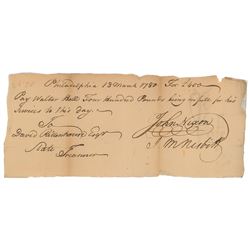 Philadelphia 13 March 1780 For £400
Pay Walter Hall Four Hundred Pounds being in full for his
Services to this day.
To
David Rittenhouse Esqr
State Treasurer
John Nixon
J M Nesbitt